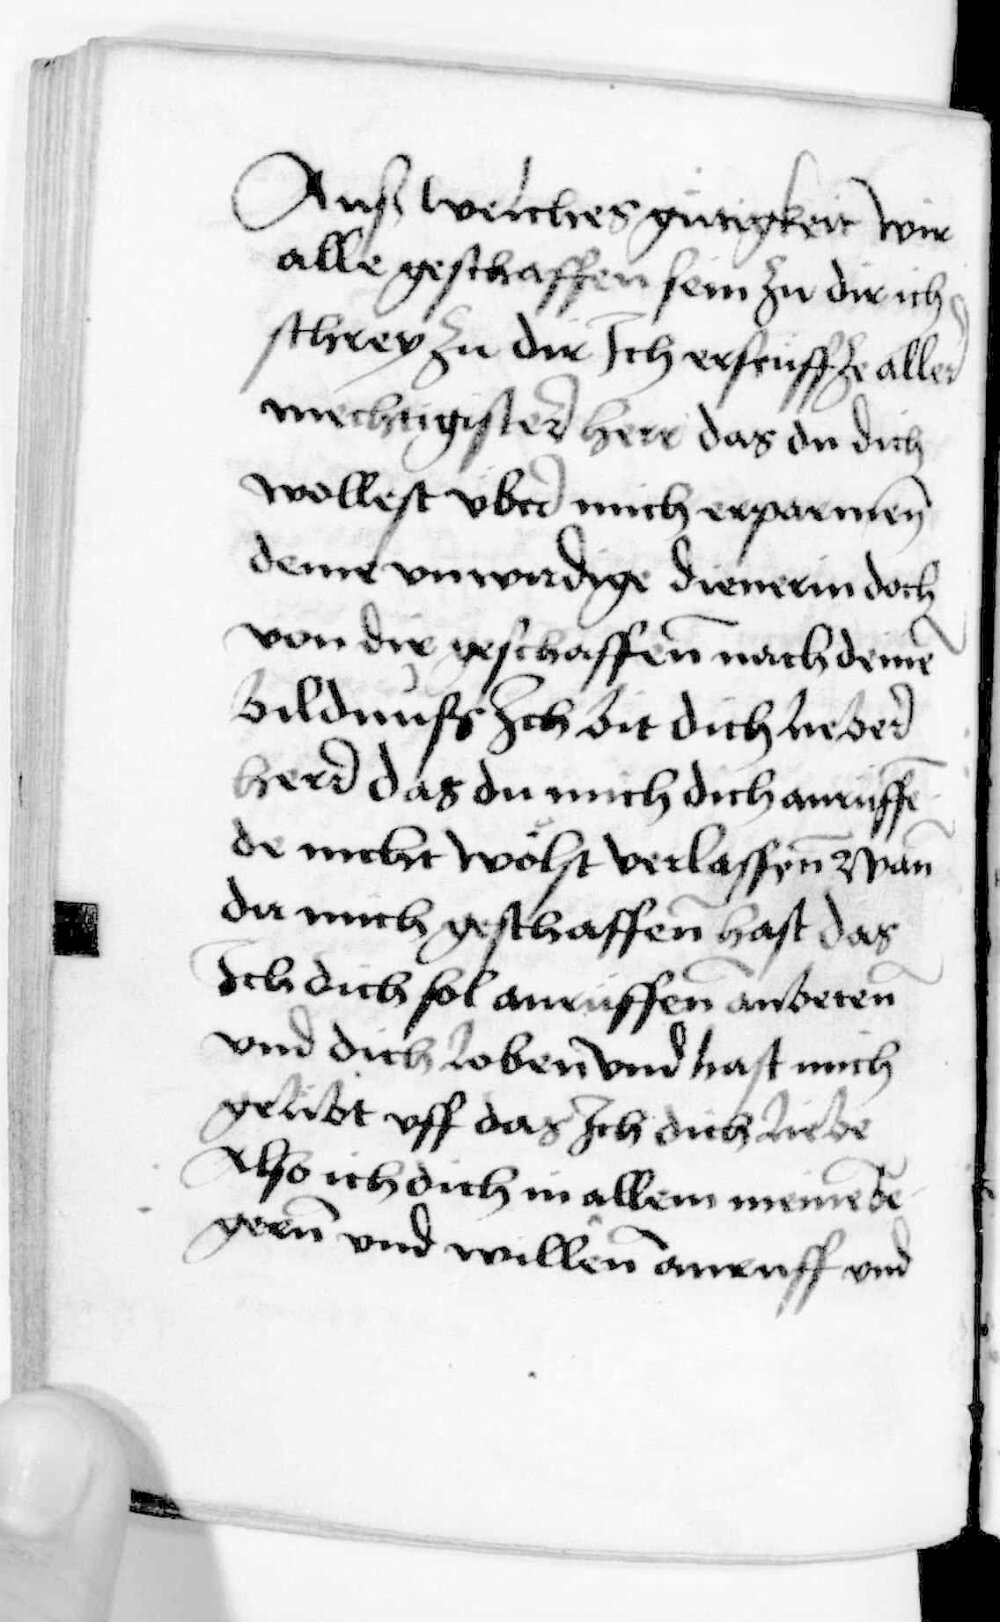 Auß welches gütigkeit wir
alle geschaffen sein zu dir ich
schrey zu dir Ich erseuffze aller
mechtigister herr das du dich
wöllest vber mich erparmen̄
deine vnwirdige dienerin doch
von dir geschaffen̄ nach deinē
bildnuß Ich bit dich lieber
herr das du mich dich anruffē
de nicht wölst verlassen̄ Wan̄
du mich geschaffen̄ hast das
Ich dich sol anruffen̄ anbeten̄
vnd dich loben vnd hast mich
gelibt vff das Ich dich liebe
Also ich dich in allem meinē be
gern̄ vnd willen̄ anruff vnd